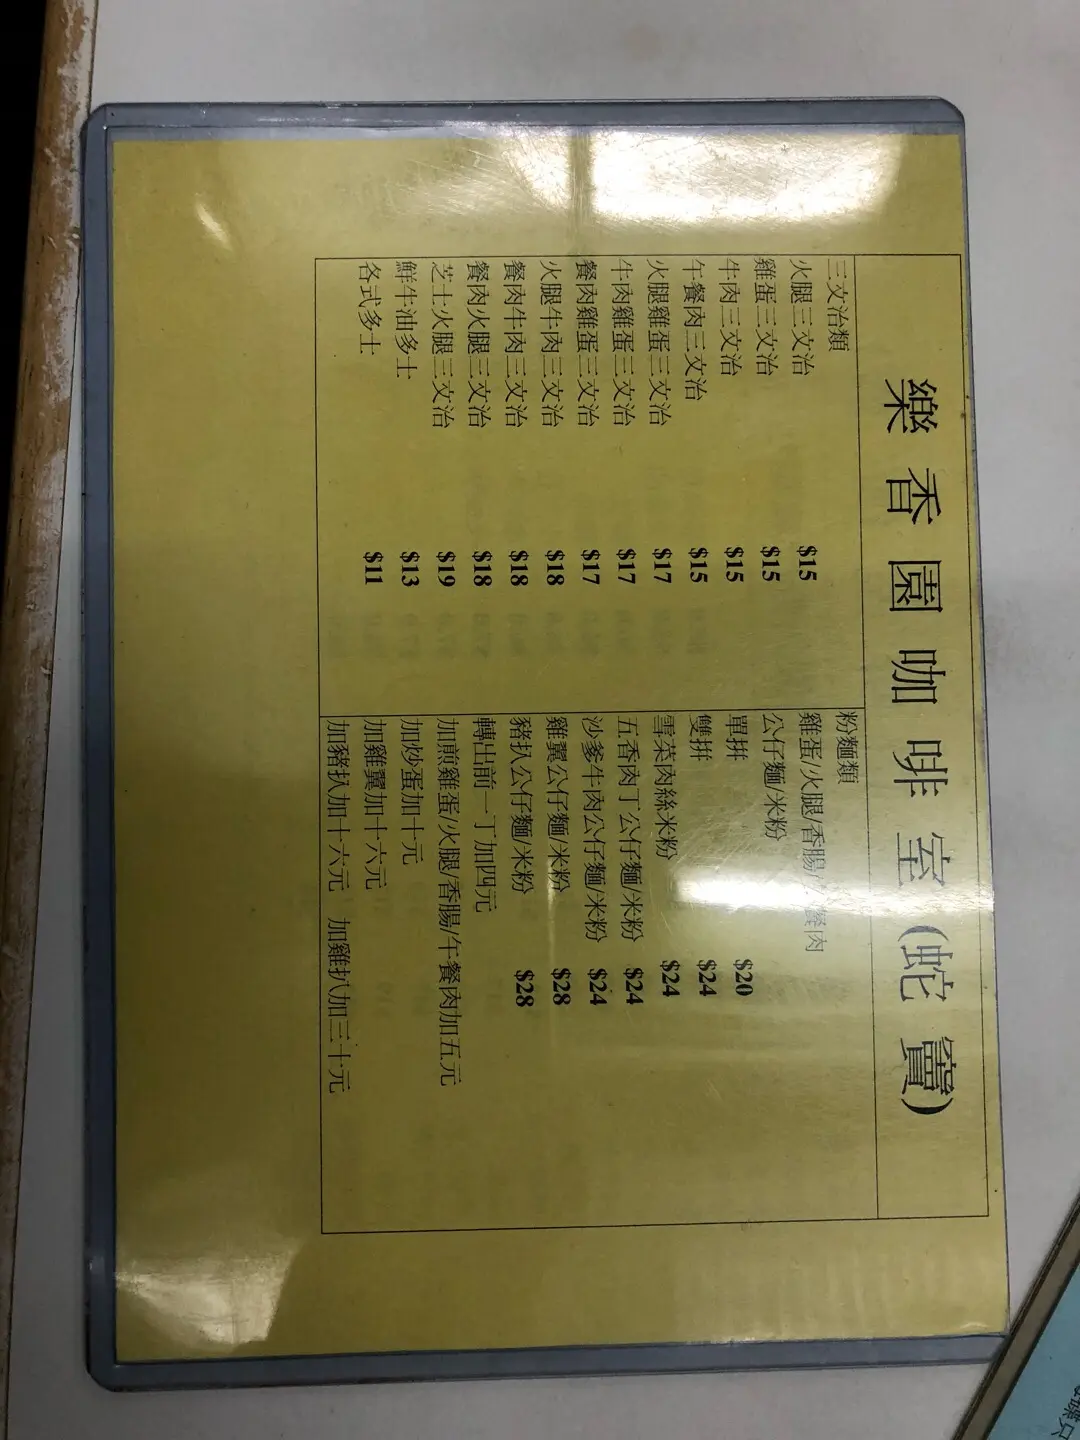 樂香園咖啡室(蛇竇)
三文治類
火腿三文治 $15
雞蛋三文治 $15
牛肉三文治 $15
午餐肉三文治 $15
火腿雞蛋三文治 $17
牛肉雞蛋三文治 $17
餐肉雞蛋三文治 $17
火腿牛肉三文治 $18
餐肉牛肉三文治 $18
餐肉火腿三文治 $18
芝士火腿三文治 $19
鮮牛油多士 $13
各式多士 $11
粉麵類
雞蛋/火腿/香腸/午餐肉
公仔麵/米粉
單拼 $20
雙拼 $24
雪菜肉絲米粉 $24
五香肉丁公仔麵/米粉 $24
沙爹牛肉公仔麵/米粉 $24
雞翼公仔麵/米粉 $28
豬扒公仔麵/米粉 $28
轉出前一丁加四元
加煎雞蛋/火腿/香腸/午餐肉加五元
加炒蛋加十元
加雞翼加十六元
加豬扒加十六元 加雞扒加三十元